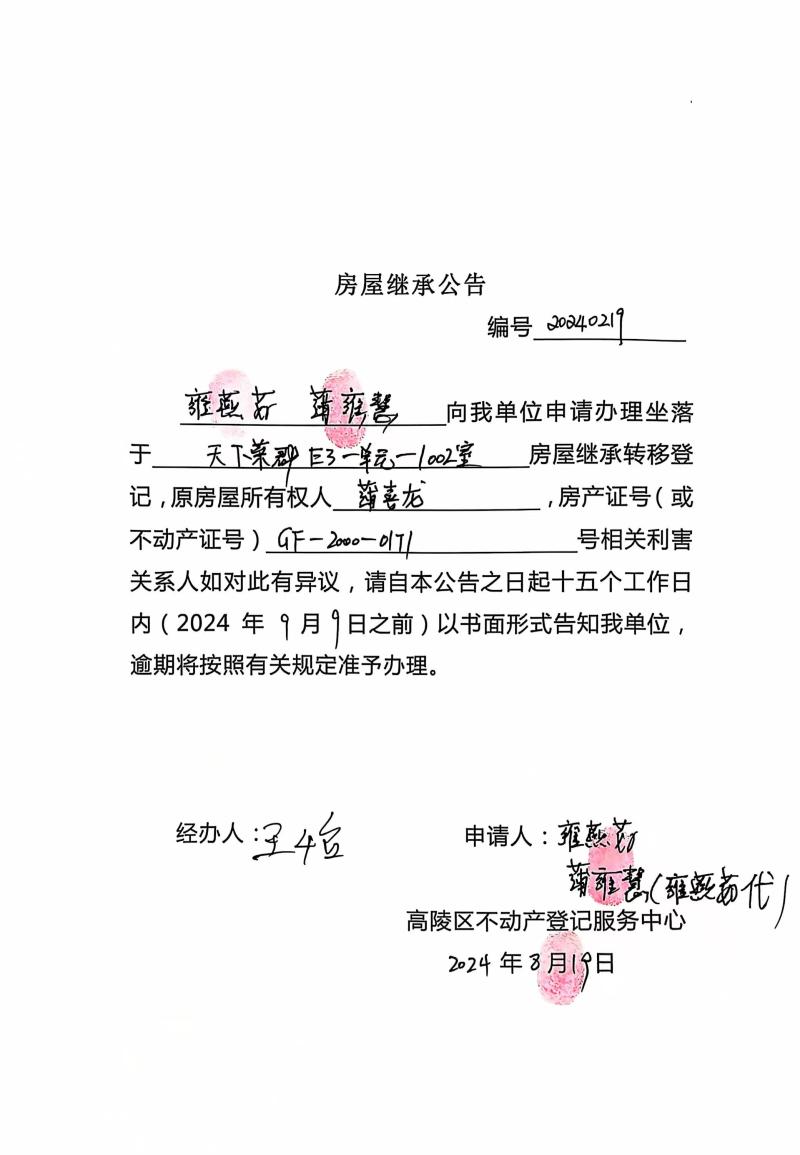 房屋继承公告
编号 20240219
雍燕芬 蒲雍慧 向我单位申请办理坐落
于 天下荣郡 E3一单元一1002室 房屋继承转移登
记，原房屋所有权人 蒲喜龙 ，房产证号（或
不动产证号）GF-2000-0171 号相关利害
关系人如对此有异议，请自本公告之日起十五个工作日
内（2024 年 9 月 9 日之前）以书面形式告知我单位，
逾期将按照有关规定准予办理。
经办人：王 申请人：雍燕芬
蒲雍慧(雍燕芬代)
高陵区不动产登记服务中心
2024 年 8 月 19 日